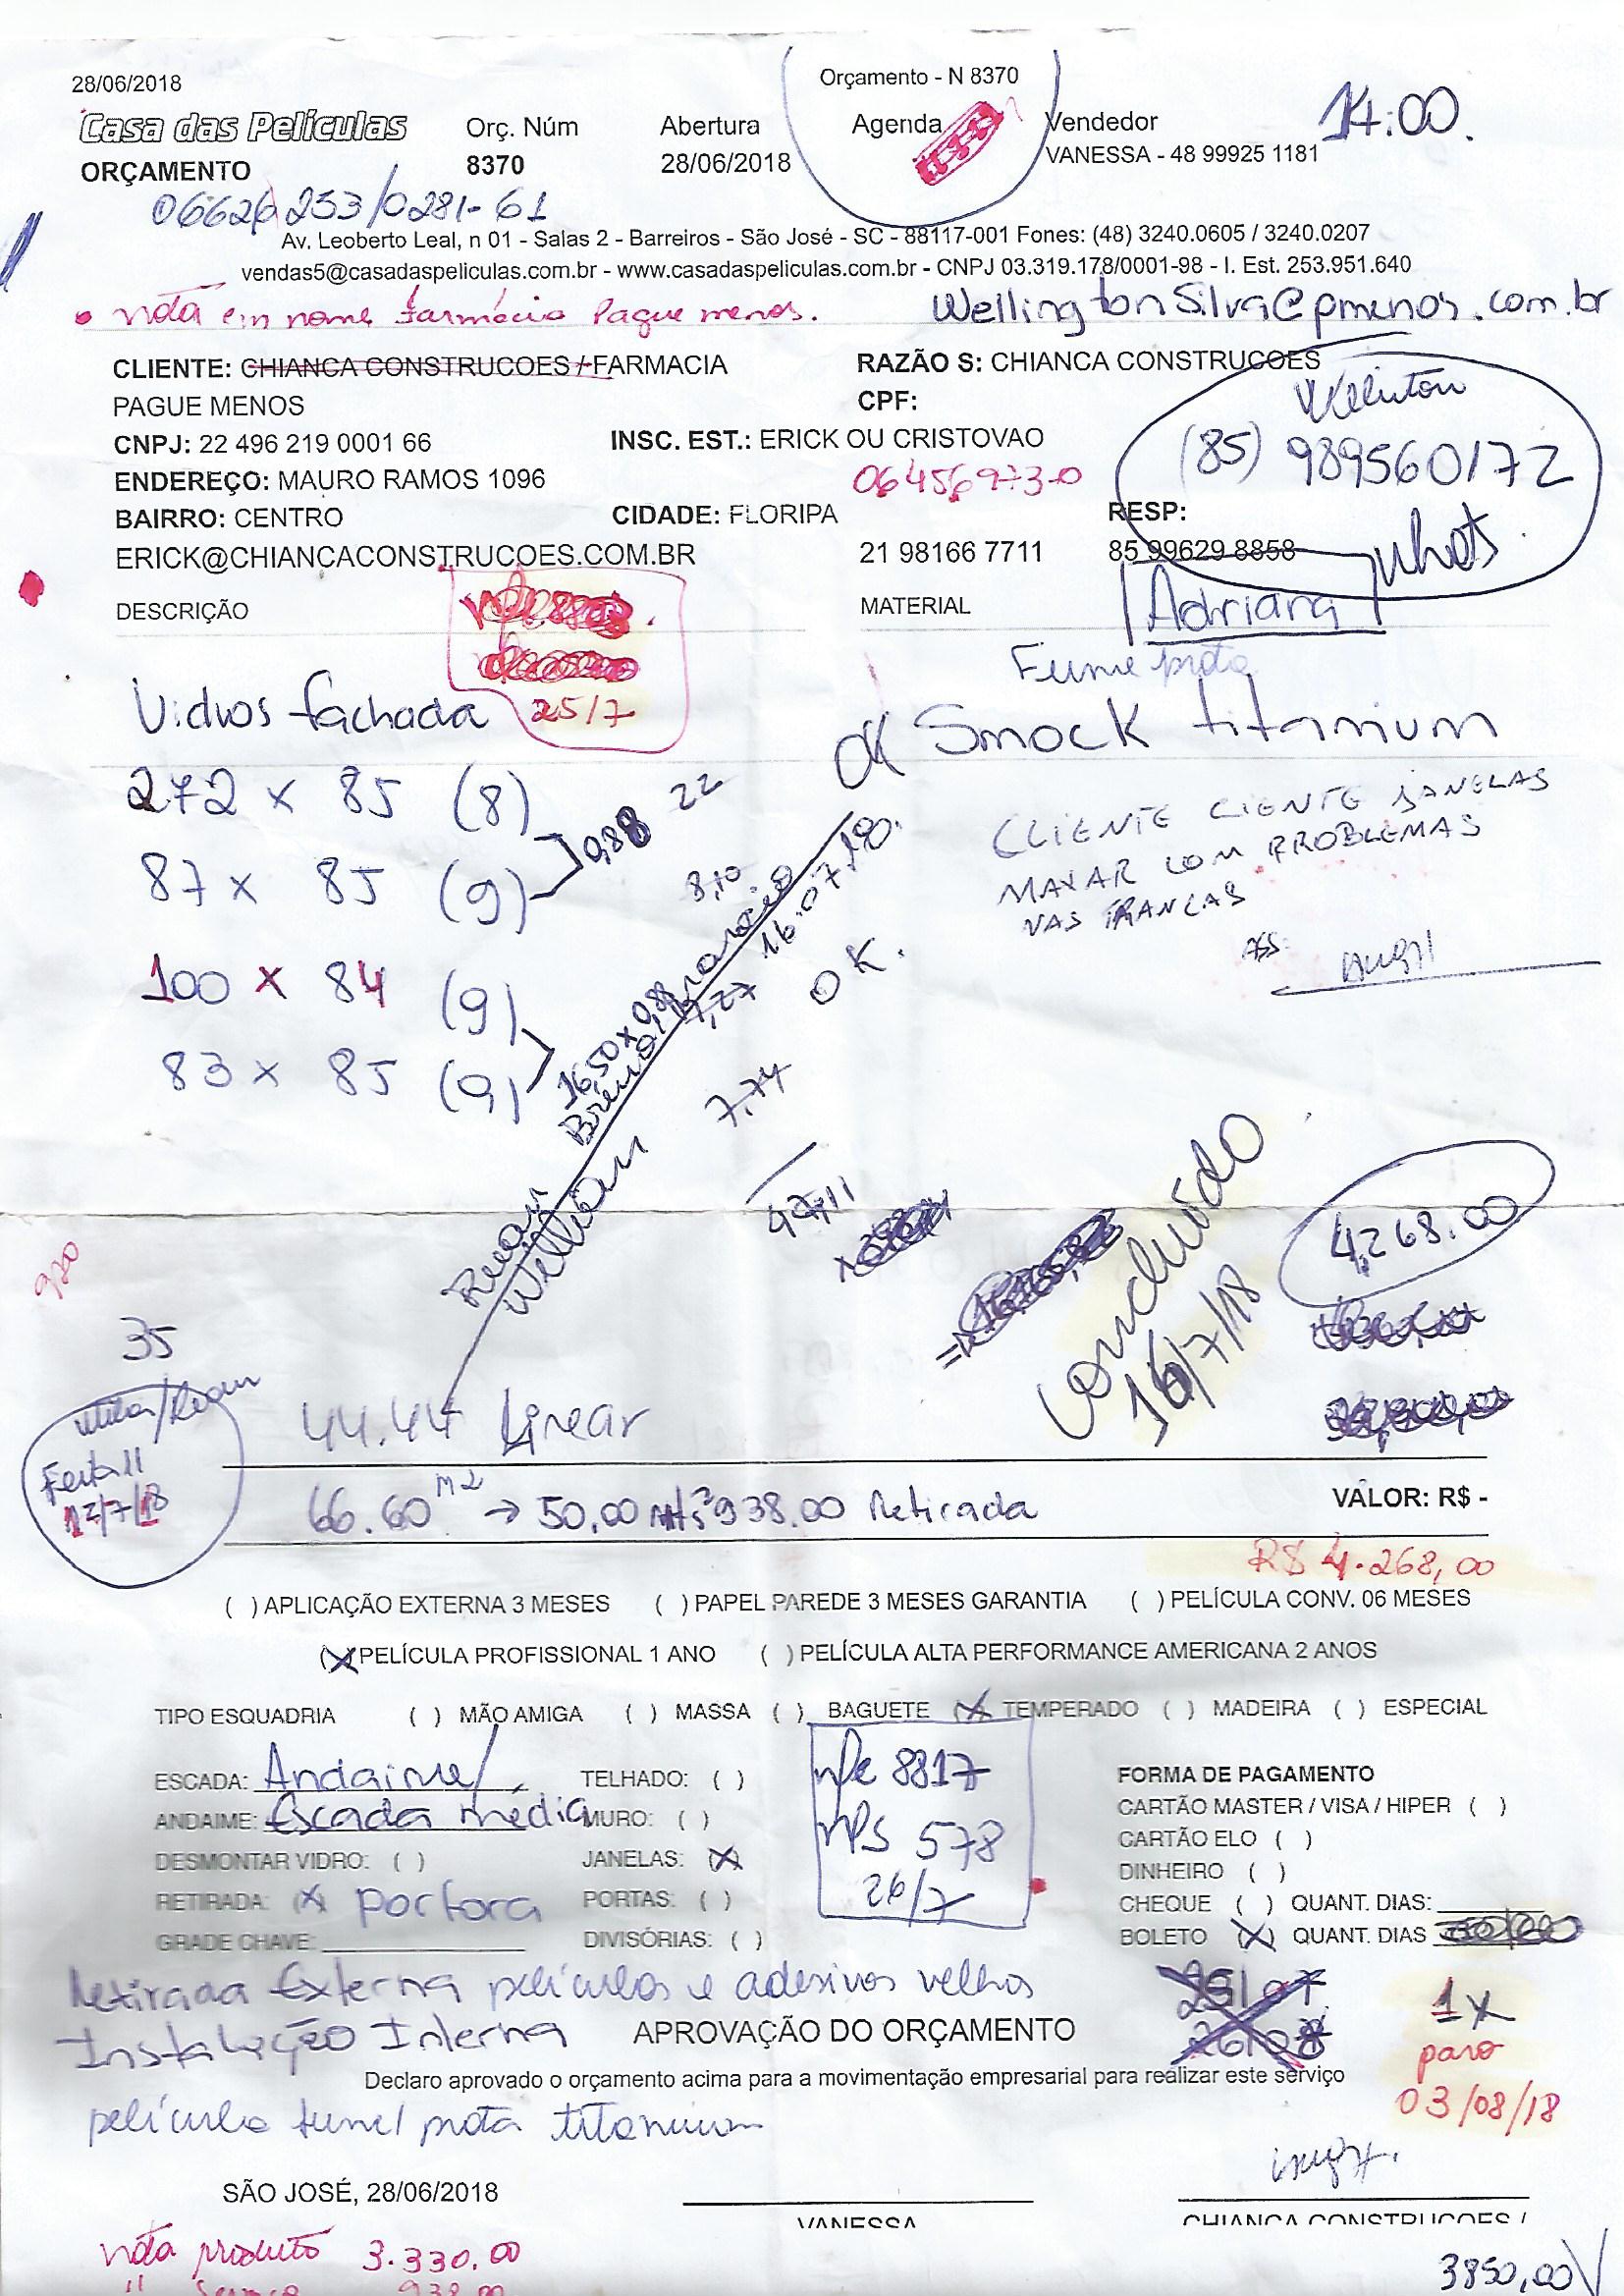 28/06/2018
Orçamento - N 8370
Casa das Películas
Orç. Núm
Abertura
Agenda
Vendedor
14:00.
ORÇAMENTO
8370
28/06/2018
VANESSA - 48 99925 1181
06626253/0281-61
Av. Leoberto Leal, n 01 - Salas 2 - Barreiros - São José - SC - 88117-001 Fones: (48) 3240.0605 / 3240.0207
vendas5@casadaspeliculas.com.br - www.casadaspeliculas.com.br - CNPJ 03.319.178/0001-98 - I. Est. 253.951.640
nota em nome farmácia Pague menos.
WellingtonSilva@pmenos.com.br
CLIENTE: CHIANCA CONSTRUCOES / FARMACIA
RAZÃO S: CHIANCA CONSTRUCOES
PAGUE MENOS
CPF:
CNPJ: 22 496 219 0001 66
INSC. EST.: ERICK OU CRISTOVAO
(85) 989560172
ENDEREÇO: MAURO RAMOS 1096
064569730
BAIRRO: CENTRO
CIDADE: FLORIPA
RESP:
whats.
ERICK@CHIANCACONSTRUCOES.COM.BR
21 98166 7711
85 99629 8858
DESCRIÇÃO
MATERIAL
Adriana
Fume prata
25/7
Vidros fachada
Smock titanium
272 x 85 (8)
0,88
22
87 x 85 (9)
8,10
100 x 84 (9)
7,27
83 x 85 (9)
7,74
47,11
16,50 x 0,88
16.07.
OK.
CLIENTE CIENTE JANELAS
MAXAR COM PROBLEMAS
NAS TRANCAS
ASS:
Ruan
Willian
Concluído
16/7/18
4,268.00
920
35
12/7/18
44.44 Linear
66.60 M2 → 50,00 938.00 Retirada
VALOR: R$ -
R$ 4.268,00
( ) APLICAÇÃO EXTERNA 3 MESES ( ) PAPEL PAREDE 3 MESES GARANTIA ( ) PELÍCULA CONV. 06 MESES
(X) PELÍCULA PROFISSIONAL 1 ANO ( ) PELÍCULA ALTA PERFORMANCE AMERICANA 2 ANOS
TIPO ESQUADRIA ( ) MÃO AMIGA ( ) MASSA ( ) BAGUETE (X) TEMPERADO ( ) MADEIRA ( ) ESPECIAL
ESCADA: Andaime
TELHADO: ( )
ANDAIME: Escada média
MURO: ( )
DESMONTAR VIDRO: ( )
JANELAS: (X)
RETIRADA: (X) Portora
PORTAS: ( )
GRADE CHAVE:
DIVISÓRIAS: ( )
nfe 8817
nfs 578
26/7
FORMA DE PAGAMENTO
CARTÃO MASTER / VISA / HIPER ( )
CARTÃO ELO ( )
DINHEIRO ( )
CHEQUE ( ) QUANT. DIAS:
BOLETO (X) QUANT. DIAS
Retirada Externa películas e adesivos velhos
Instalação Interna
APROVAÇÃO DO ORÇAMENTO
1x
para
03/08/18
Declaro aprovado o orçamento acima para a movimentação empresarial para realizar este serviço
película fumê prata titanium
SÃO JOSÉ, 28/06/2018
VANESSA
CHIANCA CONSTRUCOES /
nota produto 3.330,00
" serviço 938,00
3850,00